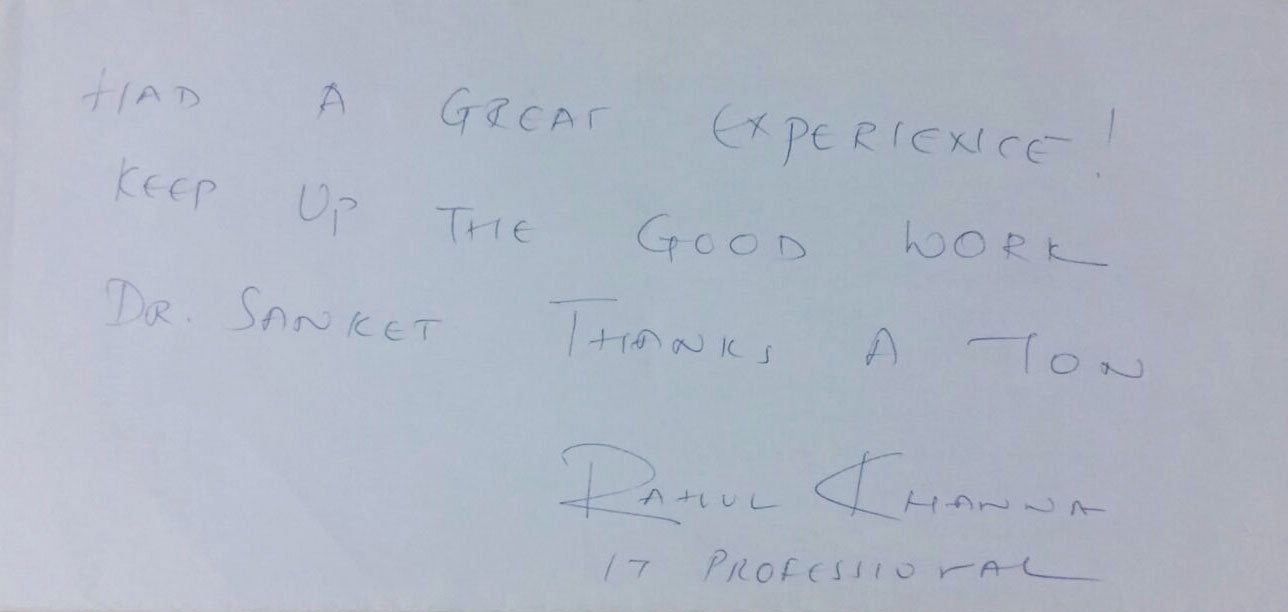 HAD A GREAT EXPERIENCE!
KEEP UP THE GOOD WORK
DR. SANKET THANKS A TON
RAHUL KHANNA
IT PROFESSIONAL